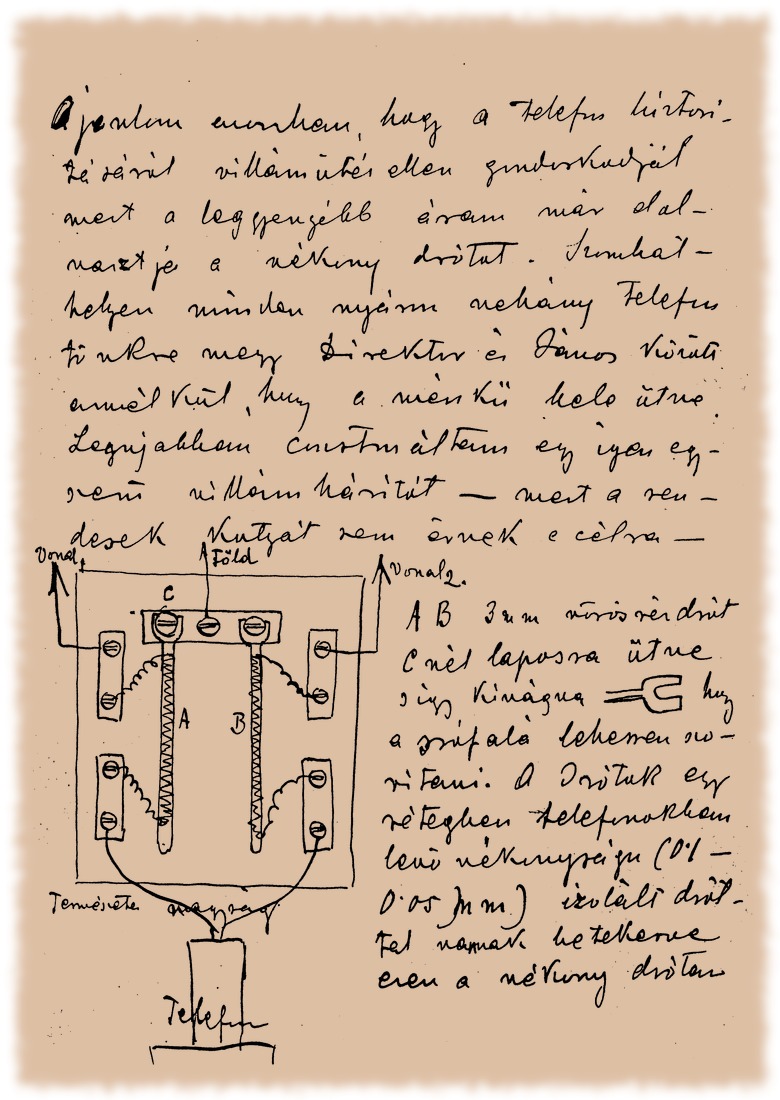 Ajánlom azonban, hogy a Telefon biztosi-
tásáról villámütés ellen gondoskodják
mert a leggyengébb áram már elol-
vasztja a vékony drótot. Szombat-
helyen minden nyáron nehány Telefon
tönkre megy Direktor és János között
annélkül, hogy a ménkü bele ütne.
Legujabban construáltam egy igen egy-
szerü villám hárítót — mert a ren-
desek kutyát sem érnek e célra —
Vonal 1
Föld
Vonal 2.
C
A
B
Természetes nagyság.
Telefon
A B 3mm vörösréz drót
C nél laposra ütve
s így kivágva hogy
a szófalá lehessen szo-
ritani. A Drótok egy
rétegben telefonokban
levö vékonyságu (0.1 —
0.05 mm) izolált drót-
tal vannak betekerve
ezen a vékony drótan